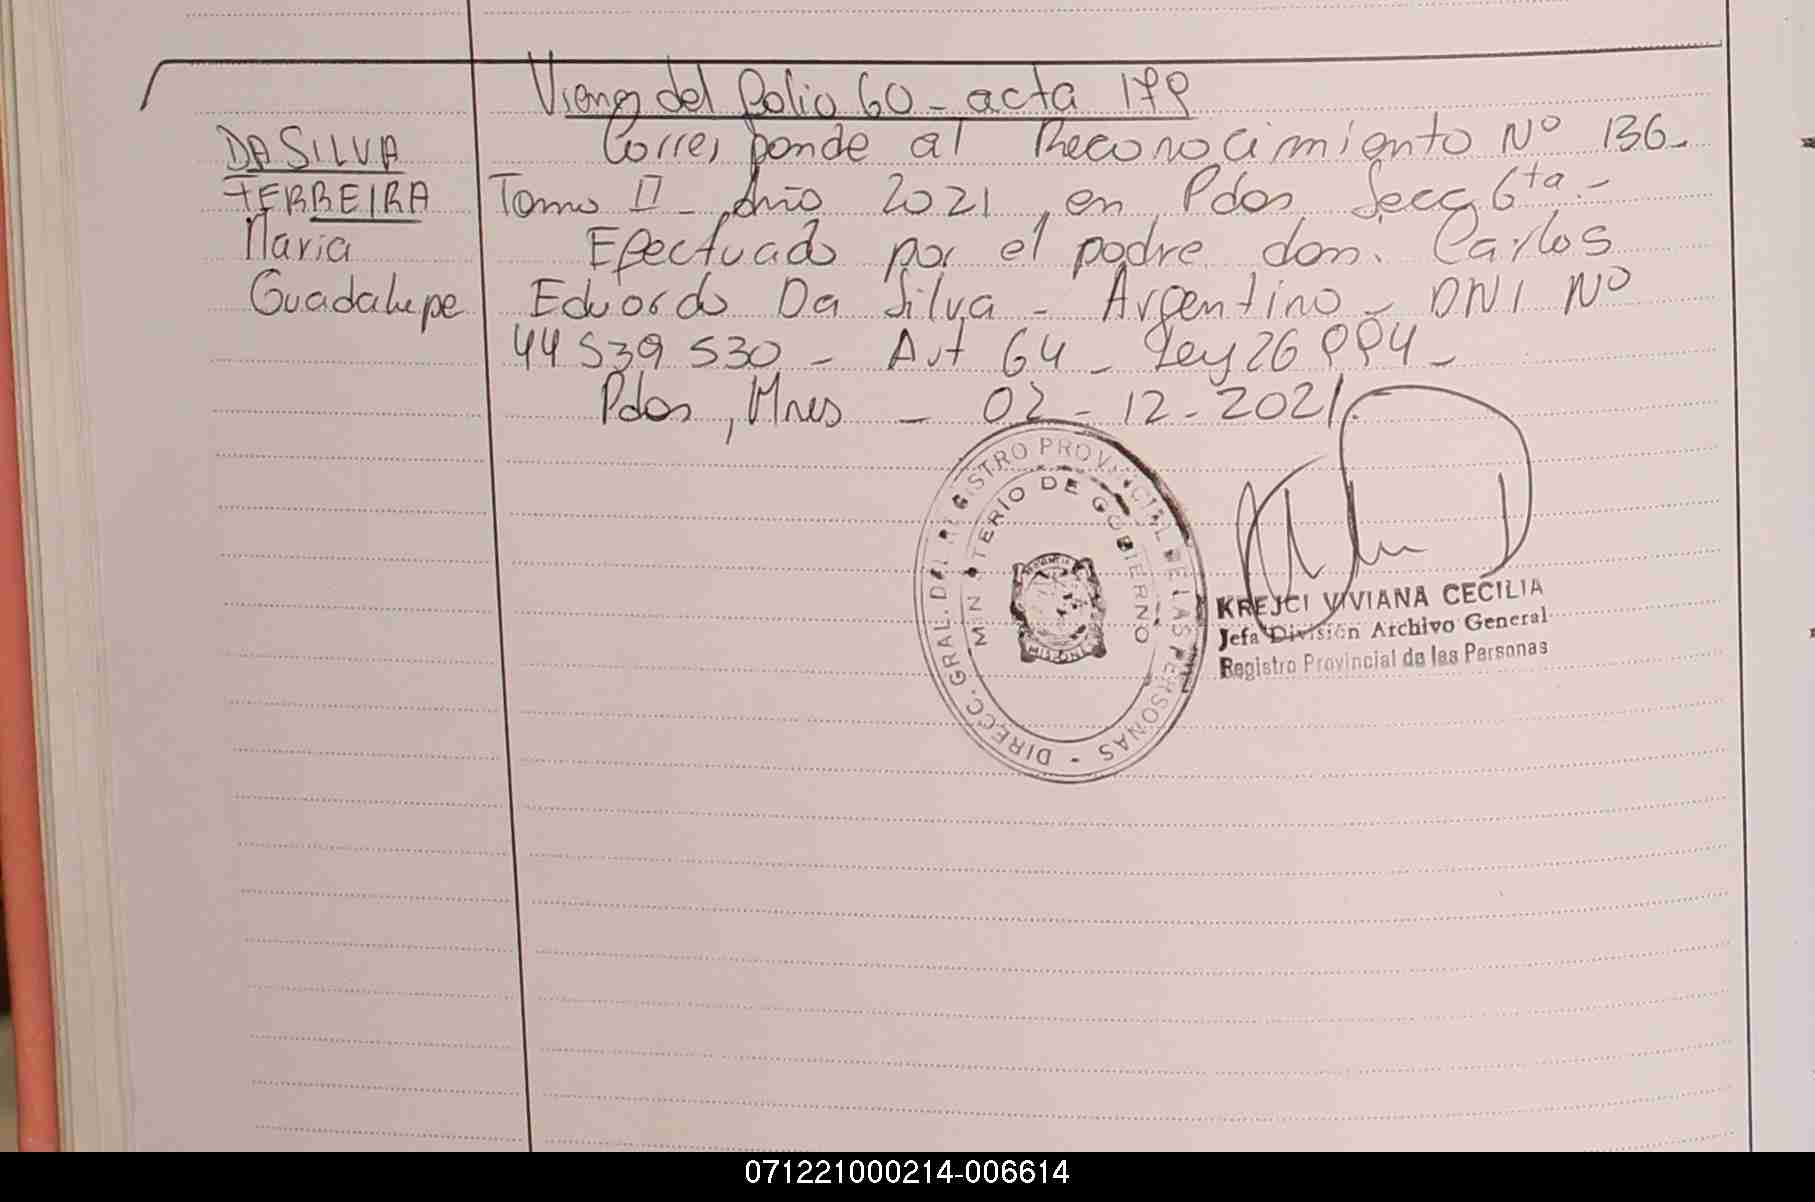 Viene del folio 60 - acta 179
DA SILVA
FERREIRA
Maria
Guadalupe
Corresponde al Reconocimiento Nº 136 -
Tomo II - Año 2021, en Pdas Secc 6ta. -
Efectuado por el padre don: Carlos
Eduardo Da Silva - Argentino - DNI Nº
44539530 - Art 64 - Ley 26994 -
Pdas, Mnes - 02-12-2021.
DIRECC. GRAL. DEL REGISTRO PROVINCIAL DE LAS PERSONAS -
MINISTERIO DE GOBIERNO
KREJCI VIVIANA CECILIA
Jefa División Archivo General
Registro Provincial de las Personas
071221000214-006614